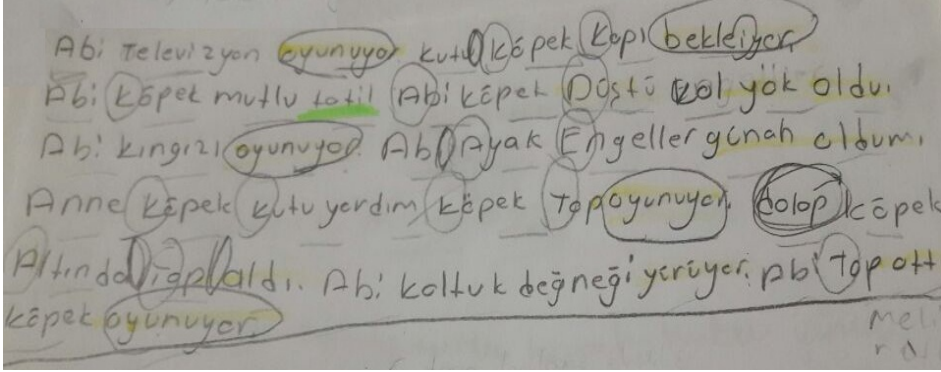 Abi Televizyon oyunuyor kutu köpek Kapı bekleiyor
Abi köpek mutlu tatil Abi köpek Düştü kol yok oldu.
Abi kıngızı oyunuyor. Abi Ayak Engeller günah oldum.
Anne köpek kutu yardım köpek Top oyunuyor. dolap köpek
Altında top aldı. Abi koltuk değneği yürüyor. Abi Top att
köpek oyunuyor.
Mel